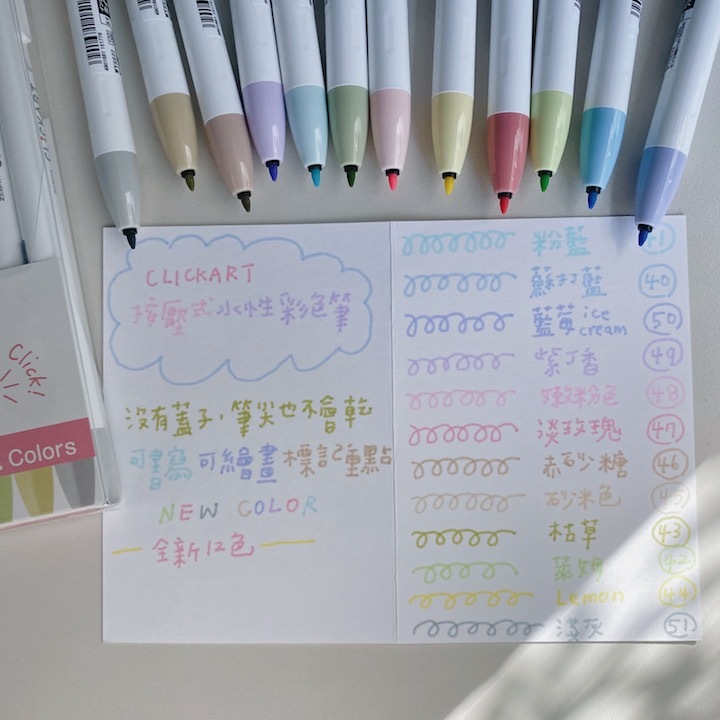 Click!
Colors
CLICKART
按壓式水性彩色筆
沒有蓋子,筆尖也不會乾
可書寫 可繪畫 標記重點
NEW COLOR
全新12色
粉藍
蘇打藍 40
藍莓 ice cream 50
紫丁香 49
嫩粉色 48
淡玫瑰 47
赤砂糖 46
砂米色 45
枯草 43
萊姆 42
Lemon 44
淺灰 51